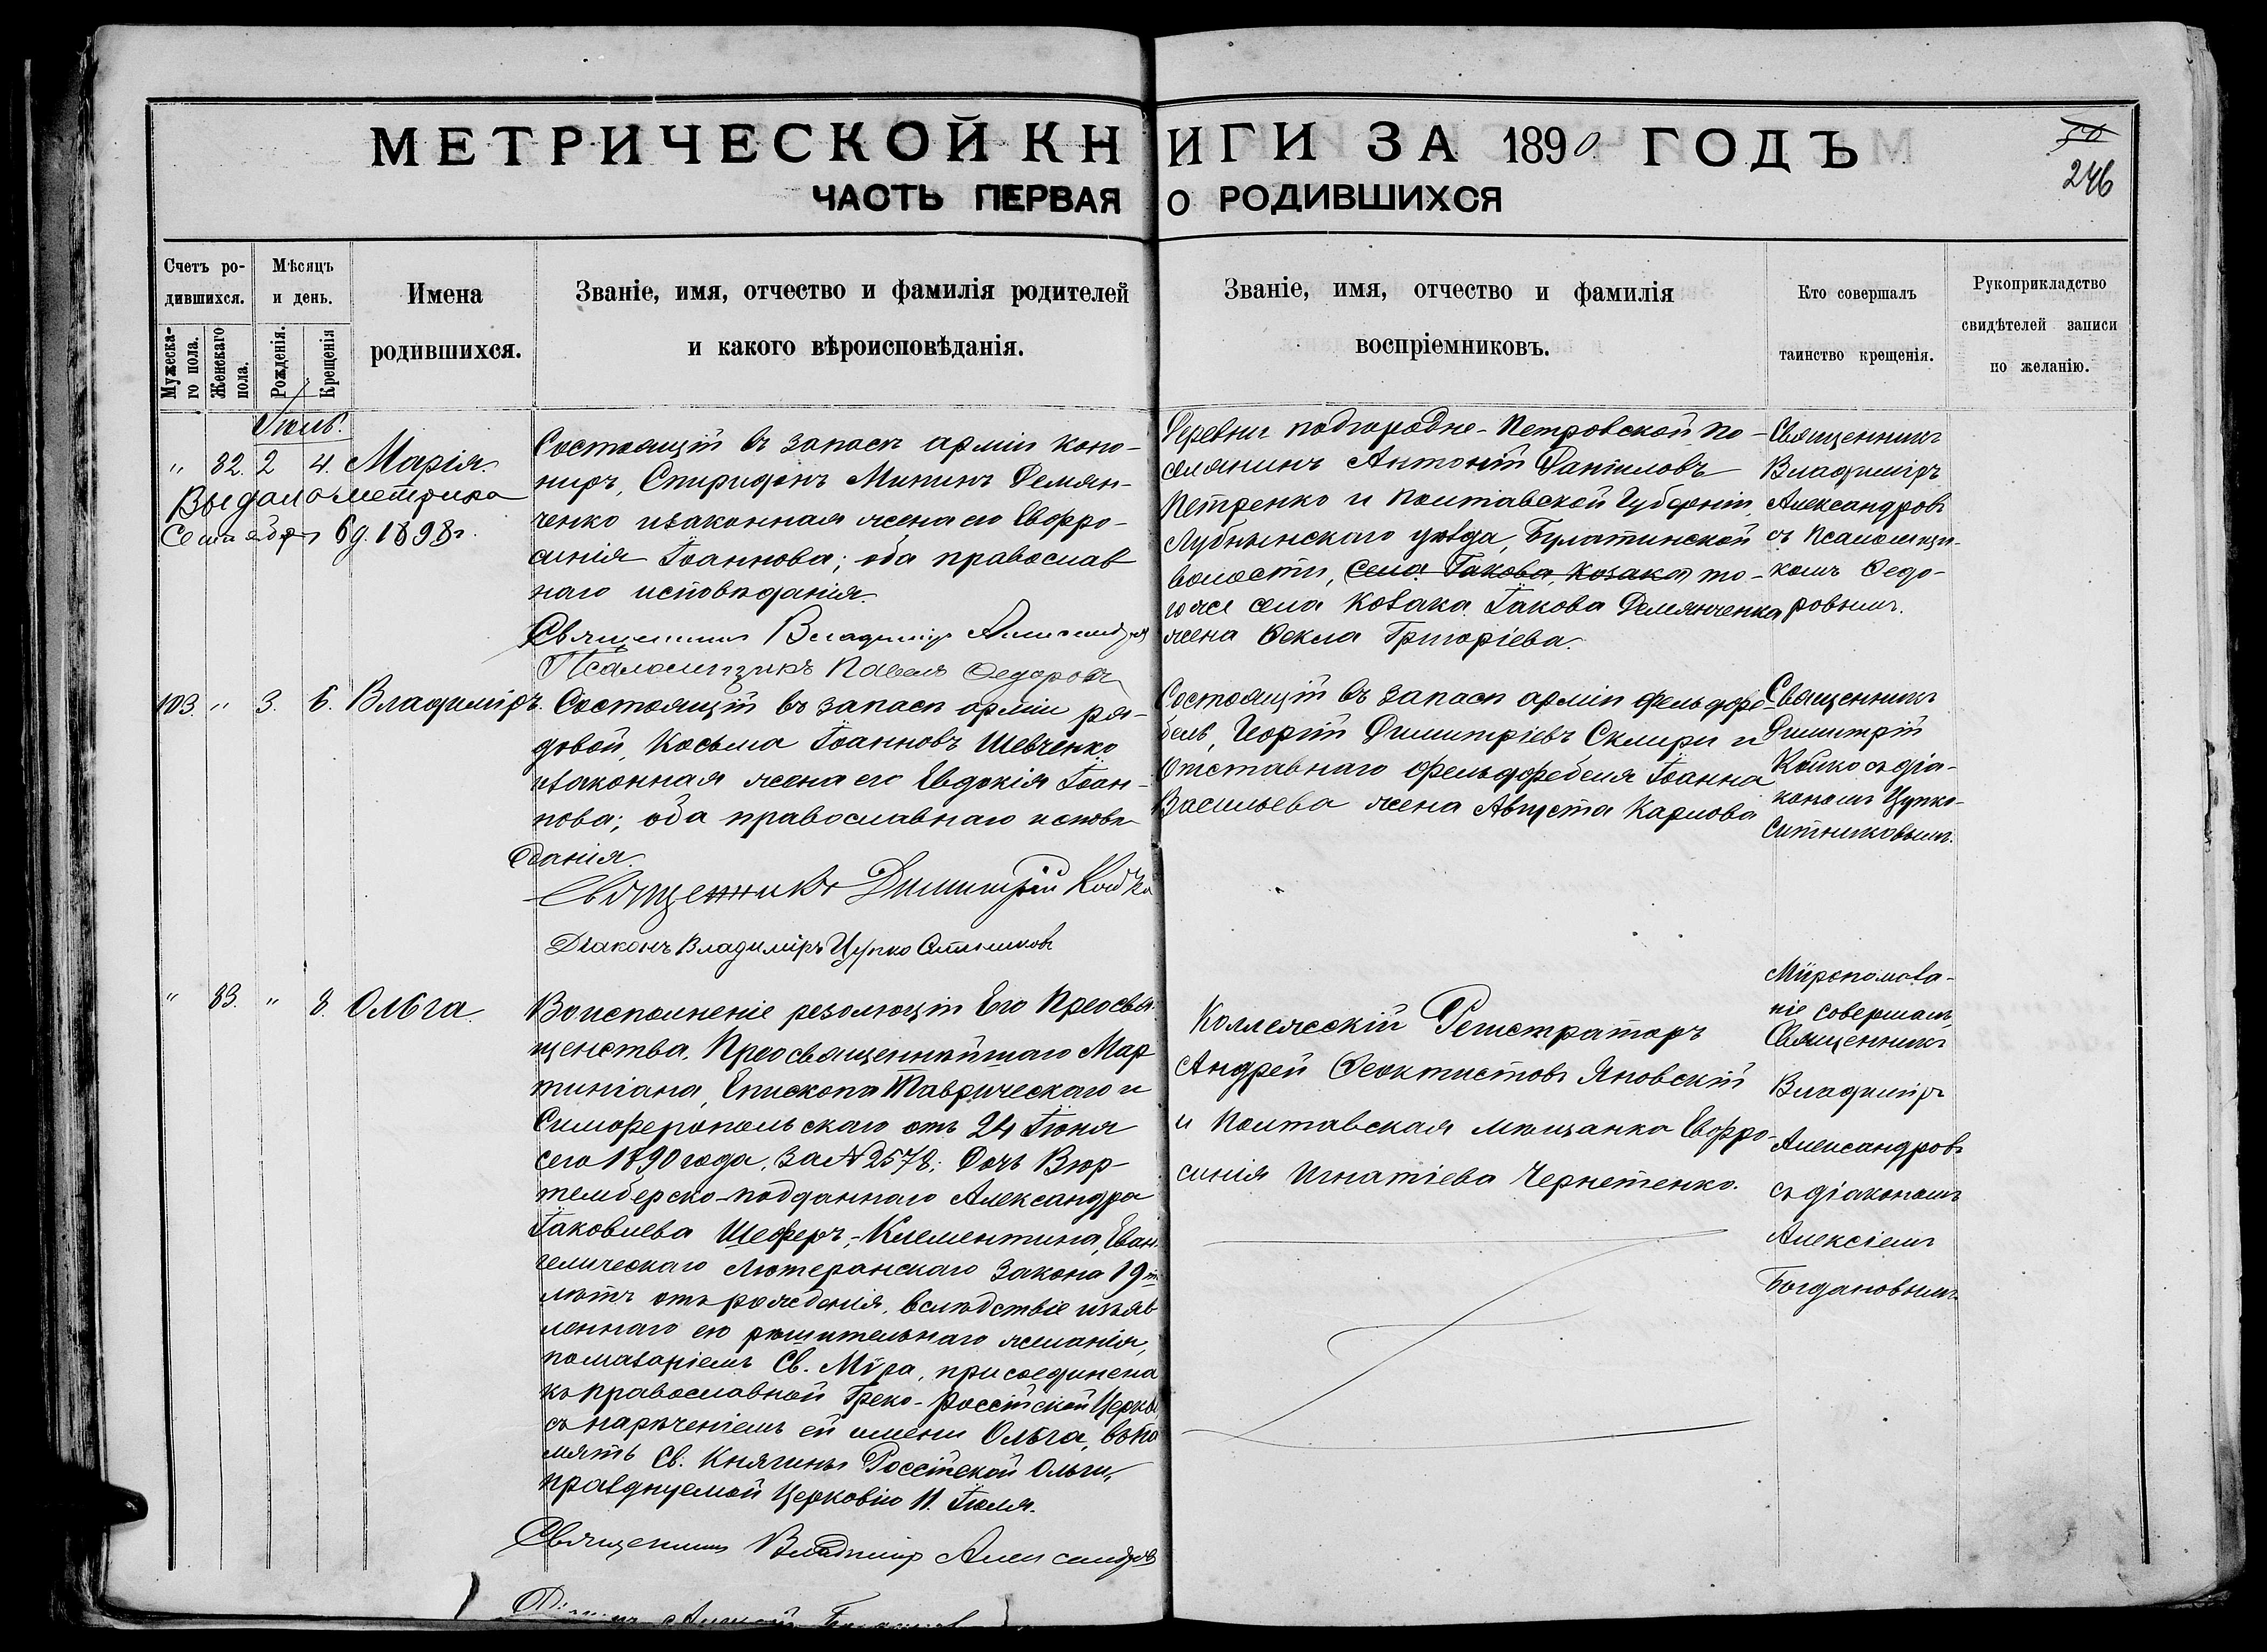 МЕТРИЧЕСКОЙ КНИГИ ЗА 1890 ГОДЪ
ЧАСТЬ ПЕРВАЯ О РОДИВШИХСЯ
50
246
Счетъ ро-
дившихся.
Мужеска-
го пола.
Женскаго
пола.
Мѣсяцъ
и день.
Рожденія.
Крещенія
Имена
родившихся.
Званіе, имя, отчество и фамилія родителей
и какого вѣроисповѣданія.
Званіе, имя, отчество и фамилія
воспріемниковъ.
Кто совершалъ
таинство крещенія.
Рукоприкладство
свидѣтелей записи
по желанію.
Іюль.
" 82. 2 4. Марія.
Выдана метрика
Сентября 6 д. 1898 г.
Состоящій въ запасѣ арміи кано-
ниръ, Спиридонъ Мининъ Демян-
ченко изаконная жена его Евфро-
синія Іоаннова; оба православ
наго исповѣданія.
Священникъ Владиміръ Александровъ
Псаломщикъ Павелъ Федоровъ
Деревни подгородне-Петровской по-
селянинъ Антоній Даніиловъ
Петренко и Полтавской Губерніи,
Лубнынскаго уѣзда, Булатинской
волости, села Іакова, козака то-
гоже села козака Іакова Демянченка
жена Фекла Григоріева.
Священникъ
Владиміръ
Александровъ
съ Псаломщи-
комъ Федо-
ровымъ.
103. " 3. 6. Владиміръ.
Состоящій въ запасѣ арміи ря-
довой, Косьма Іоанновъ Шевченко
изаконная жена его Евдокія Іоан-
нова; оба православнаго исповѣ-
данія.
Священникъ Димитрій Койко
Діаконъ Владиміръ Цупко Ситниковъ
Состоящій въ запасѣ арміи фельдфе-
бель, Георгій Димитріевъ Склири и
Отставнаго фельдфебеля Іоанна
Васильева жена Августа Карлова
Священникъ
Димитрій
Койко съ діа-
кономъ Цупко-
Ситниковымъ.
" 83. " 8. Ольга.
Воисполненіе резолюціи Его Преосвя-
щенства, Преосвященнѣйшаго Мар
тиніана, Епископа Таврическаго и
Симферопольскаго отъ 24 Іюня
сего 1890 года, за № 2578; Дочь Вюр-
темберско-подданнаго Александра
Іаковлева Шеферъ,-Клементина, Еван
гелическаго Лютеранскаго Закона 19ти
лѣтъ отъ рожденія, вслѣдствіе изъяв
леннаго ею рѣшительнаго желанія,
помазаніемъ Св. Мѵра, присоединена
къ православной Греко-Россійской Церкви,
съ нареченіемъ ей имени Ольга, въ па
мять Св. Княгины Россійской Ольги,
празднуемой Церковію 11. Іюля.
Священникъ Владиміръ Александровъ
Коллежскій Регистраторъ
Андрей Феоктистовъ Яновскій
и Полтавская мѣщанка Евфро-
синія Игнатіева Чернетенко.
Мѵропомаза-
ніе совершалъ
Священникъ
Владиміръ
Александровъ
съ діакономъ
Алексіемъ
Богдановымъ.